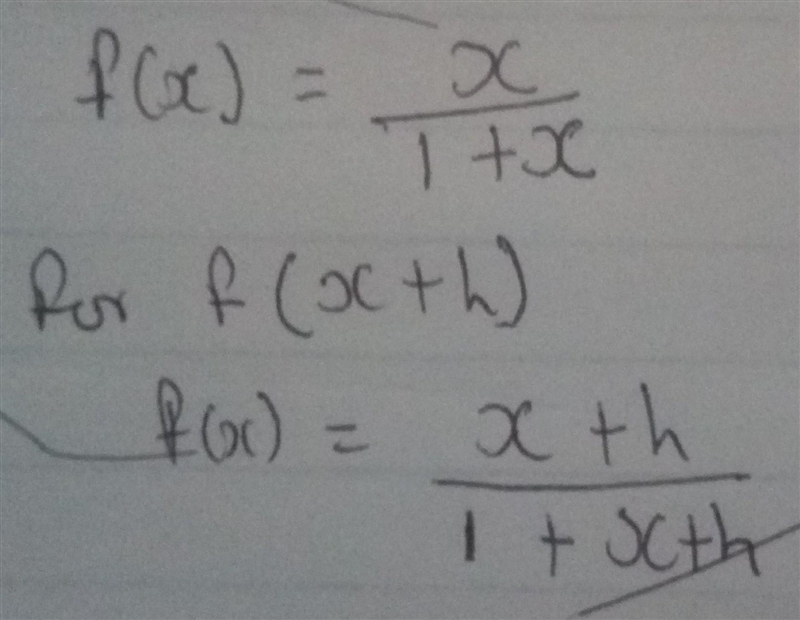 f(x) = x/(1+x)
for f(x+h)
f(x) = (x+h)/(1+x+h)